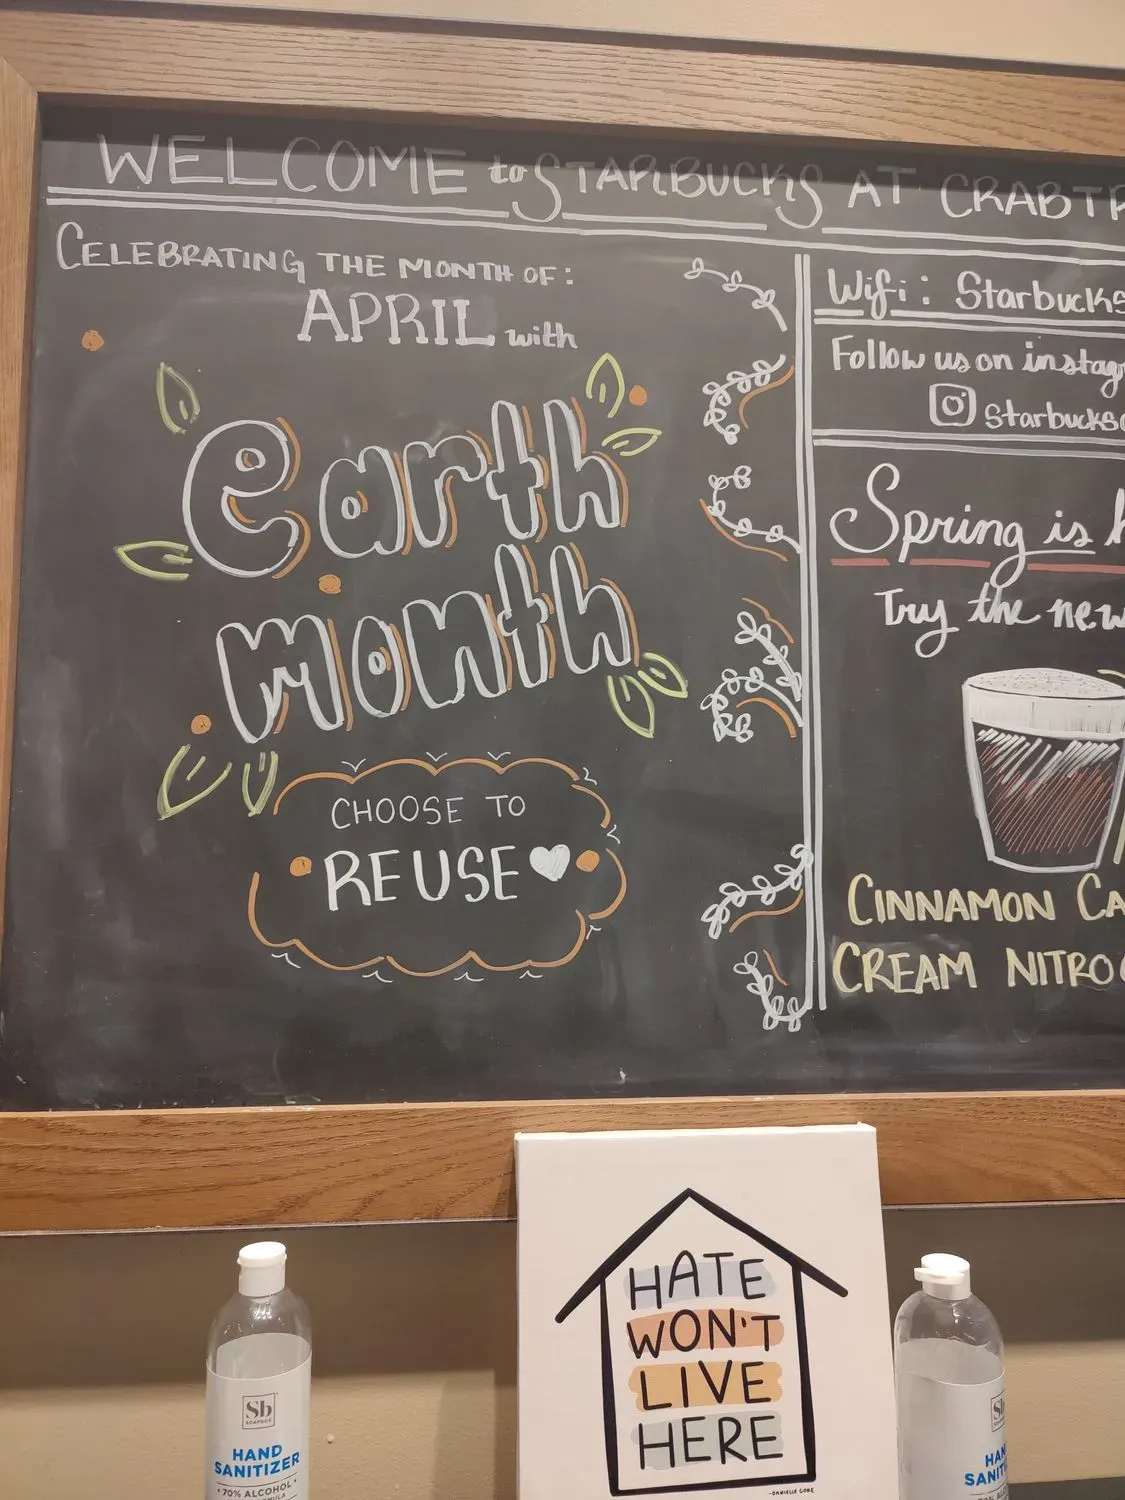 WELCOME to STARBUCKS AT CRABTR
CELEBRATING THE MONTH OF:
APRIL with
earth
month
CHOOSE TO
REUSE
Wifi: Starbucks
Follow us on instag
Starbucks
Spring is
Try the new
CINNAMON CA
CREAM NITRO
HATE
WON'T
LIVE
HERE
-DANIELLE COKE
Sb
SOAPBOX
HAND
SANITIZER
70% ALCOHOL
FORMULA
Sb
HAN
SANIT
70% ALC